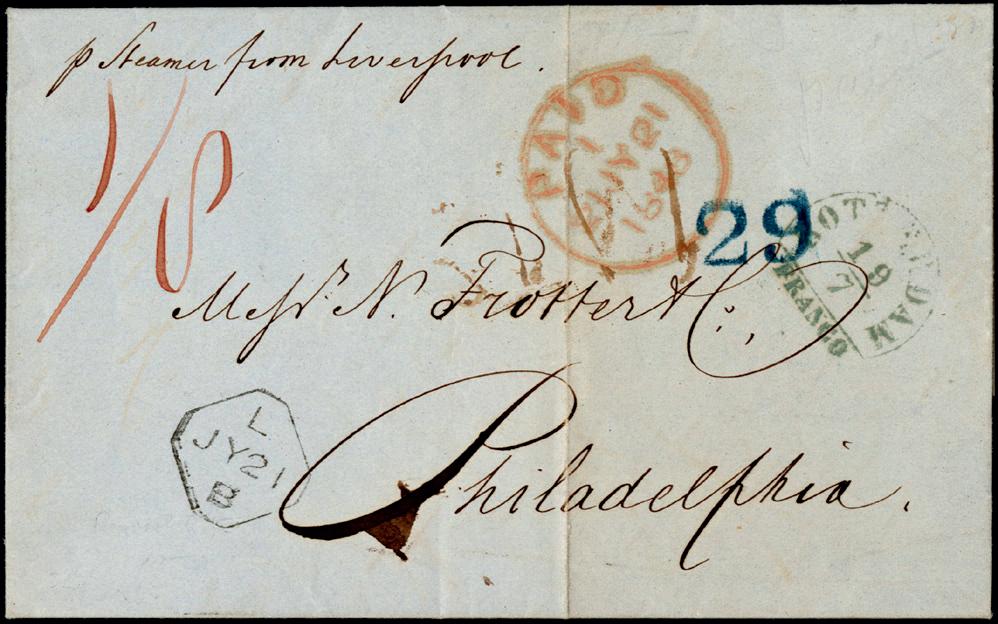 p Steamer from Liverpool.
1/8
PAID
1
21 JY 21
1848
29
ROTTERDAM
19
7
FRANCO
Messrs N. Trotter & Co.,
L
JY 21
B
Philadelphia.